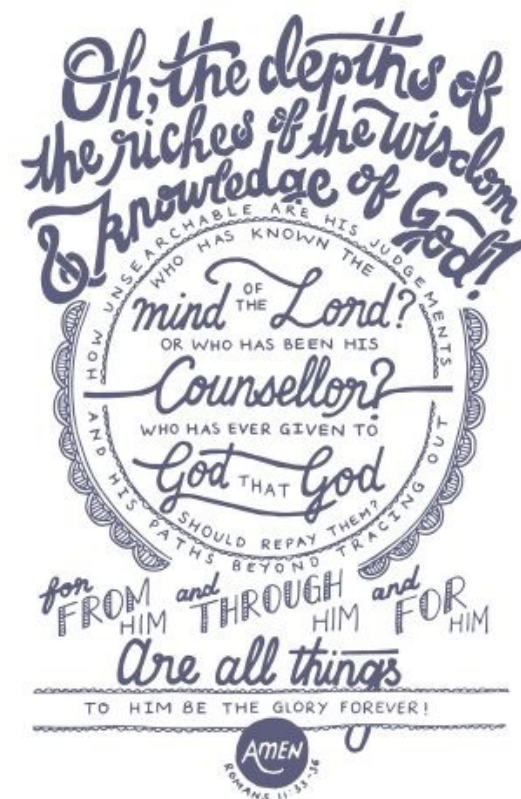 Oh, the depths of
the riches of the wisdom
& knowledge of God!
HOW UNSEARCHABLE ARE HIS JUDGEMENTS
AND HIS PATHS BEYOND TRACING OUT
WHO HAS KNOWN THE
mind OF THE Lord?
OR WHO HAS BEEN HIS
Counsellor?
WHO HAS EVER GIVEN TO
God THAT God
SHOULD REPAY THEM?
for FROM HIM and THROUGH HIM and FOR HIM
Are all things
TO HIM BE THE GLORY FOREVER!
AMEN
ROMANS 11:33-36